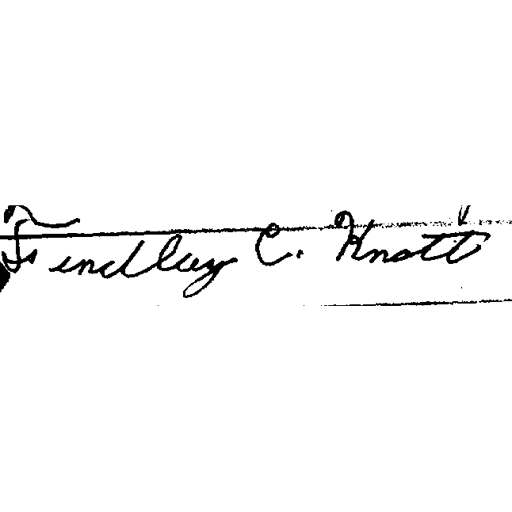 Findlay C. Knott